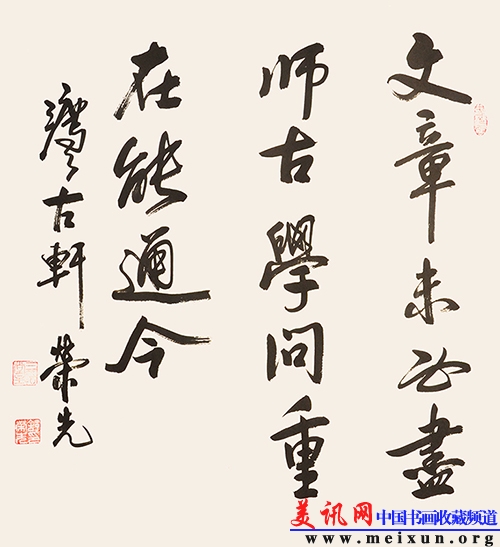 文章未必盡
师古學问重
在能通今
古軒 荣先
美讯网 中国书画收藏频道
www.meixun.org